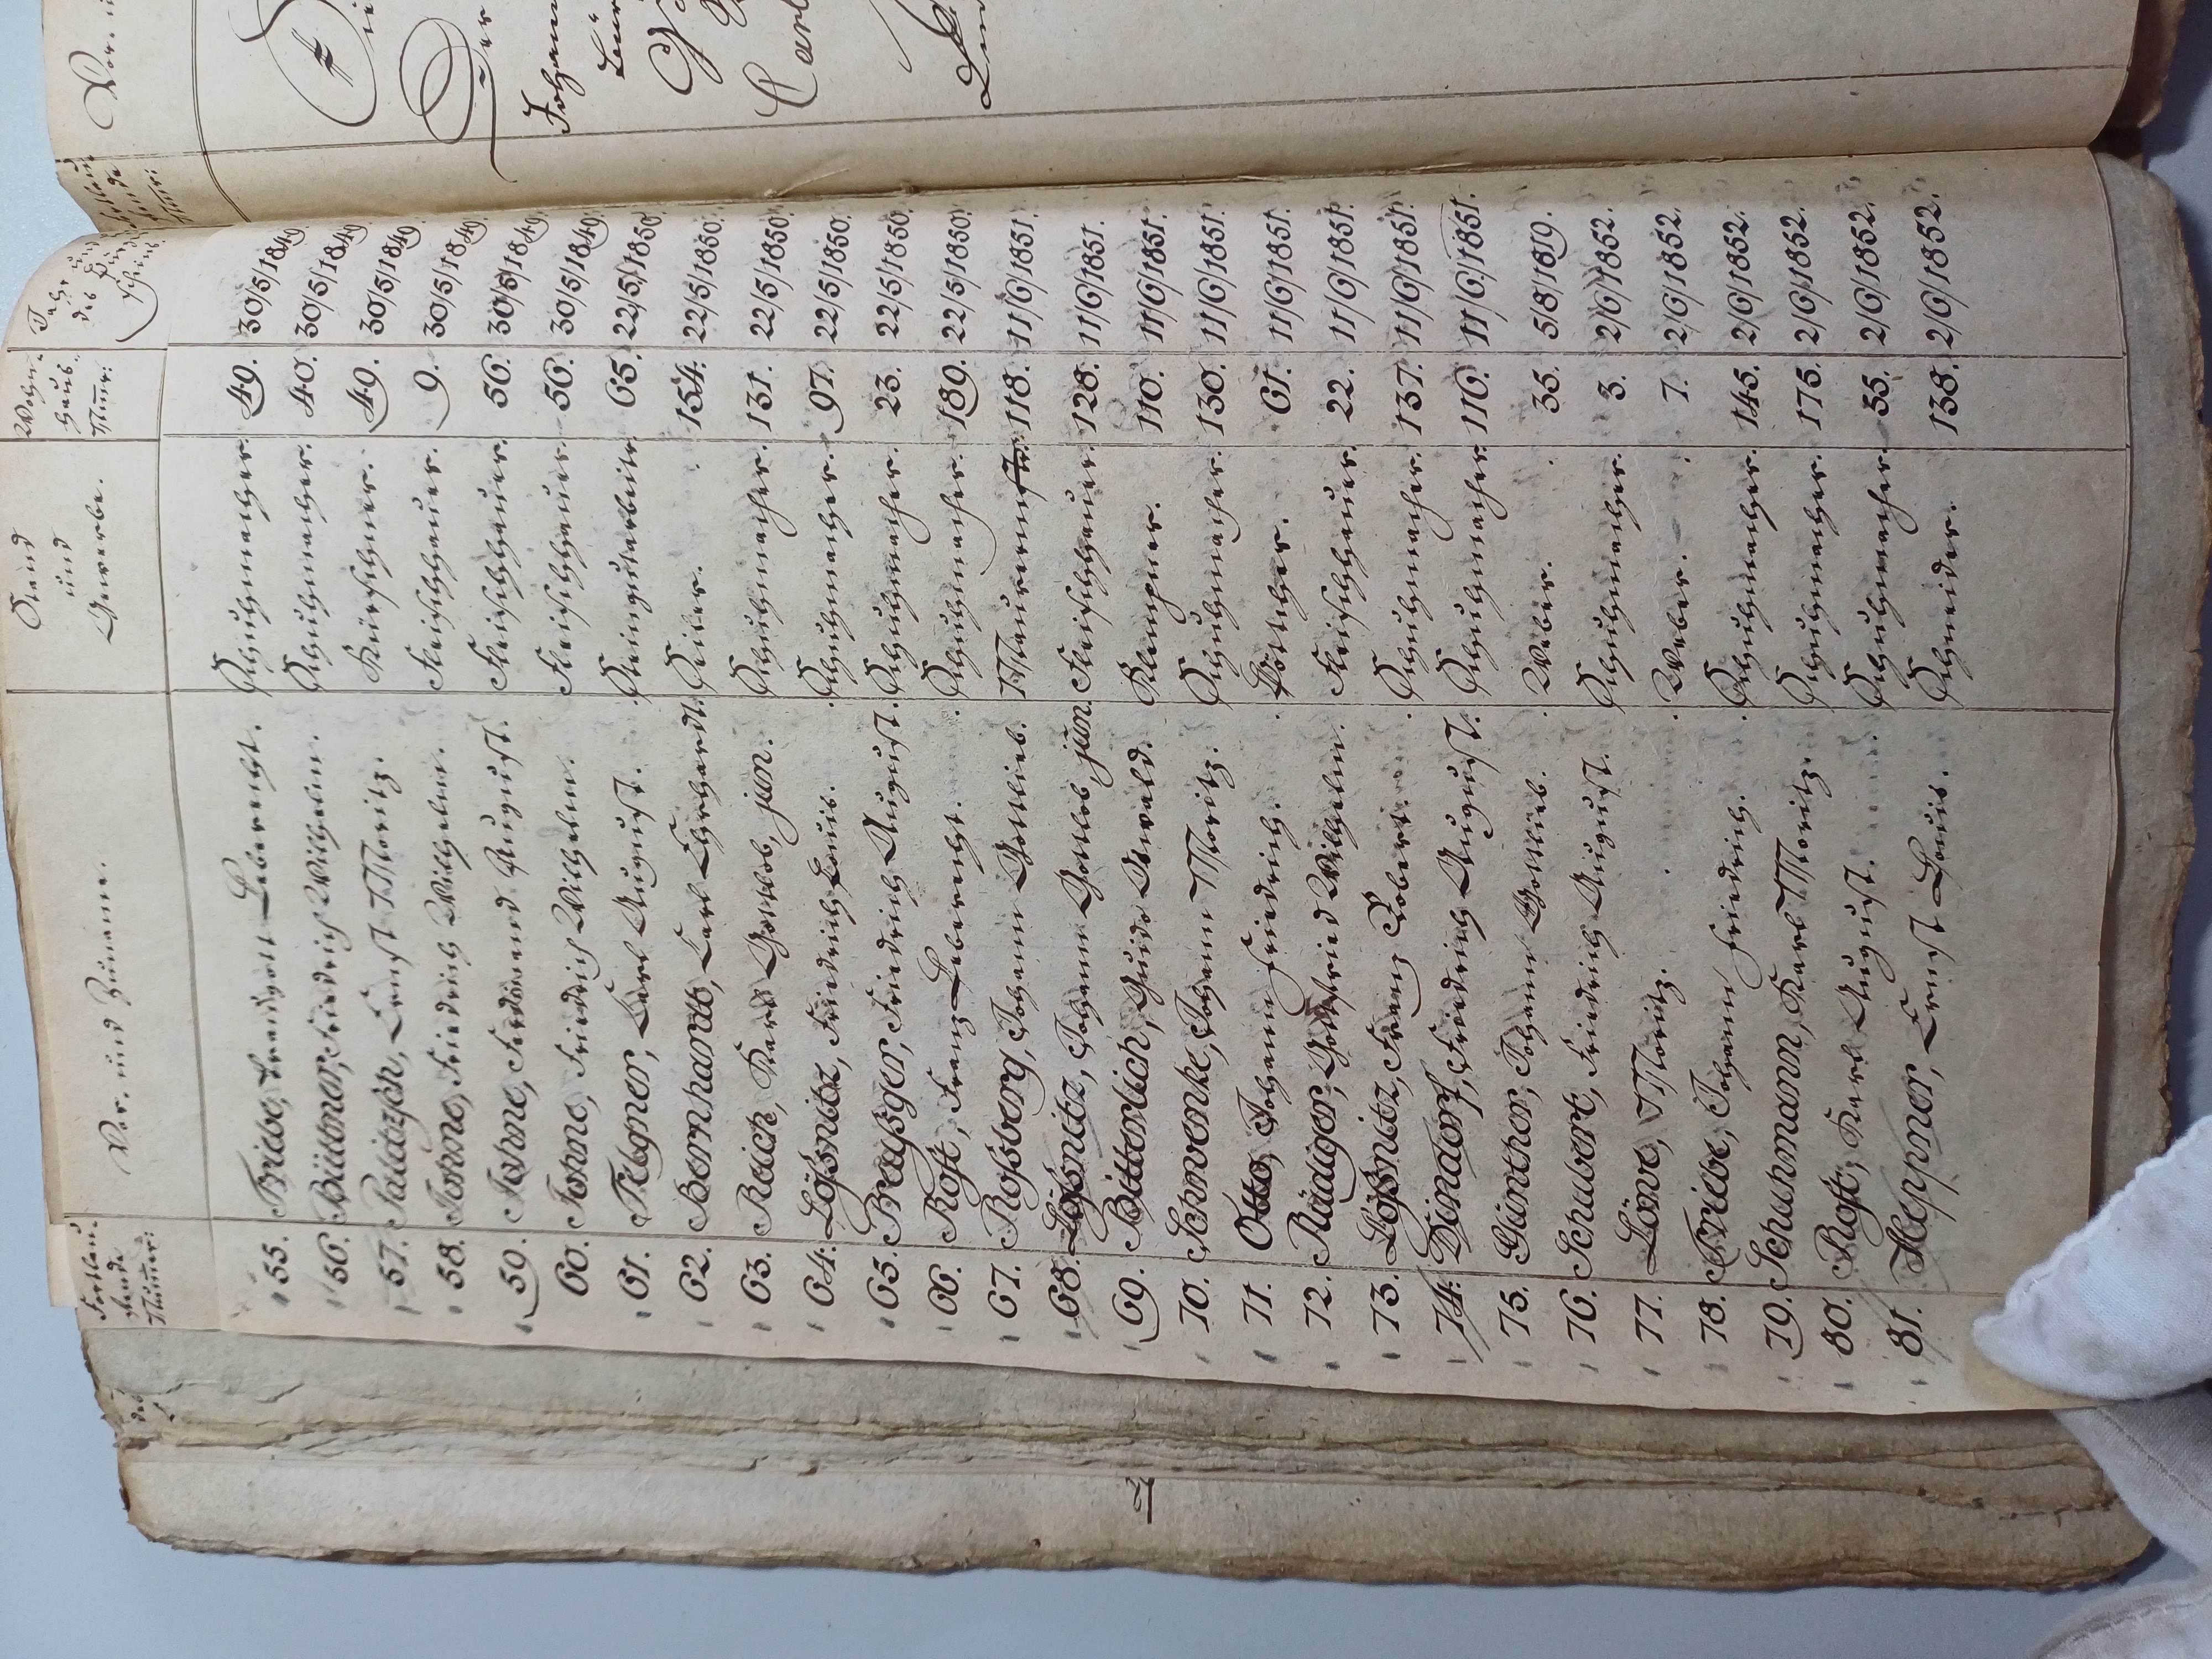 Fortlau-
fende
Num̅er:
Vor- und Zuname.
Stand
und
Gewerbe.
Wohn-
haus-
Num̅r:
55. Triebe, Traugott Leberecht. Schuhmacher. 49. 30/5/1849.
56. Büttner, Friedrich Wilhelm. Schuhmacher. 40. 30/5/1849.
57. Ernst Moritz. Kürschner. 49. 30/5/1849.
58. Fohne, Friedrich Wilhelm. Fleischhauer. 9. 30/5/1849.
59. Fohne, Ferdinand August. Fleischhauer. 56. 30/5/1849.
60. Fohne, Friedrich Wilhelm. Fleischhauer. 56. 30/5/1849.
61. Carl August. Steingutarbeiter 65. 22/5/1850.
62. Bernhardt, Carl Ehrhardt. Seiler. 154. 22/5/1850.
63. Reich, Karl Gottlob, jun. Schuhmacher. 131. 22/5/1850.
64. Lößnitz, Friedrich Louis. Schuhmacher. 97. 22/5/1850.
65. Friedrich August. Schuhmacher. 23. 22/5/1850.
66. Rost, Franz Leberecht. Schuhmacher. 189. 22/5/1850.
67. Roßberg, Johann Gottlieb. 118. 11/6/1851.
68. Lößnitz, Johann Gottlob, jun. Fleischhauer. 128. 11/6/1851.
69. Bitterlich, Guido Oswald. Klempner. 110. 11/6/1851.
70. Schwenke, Johann Moritz. Schuhmacher. 130. 11/6/1851.
71. Otto, Johann Friedrich. Böttcher. 61. 11/6/1851.
72. Rüdiger, Gottfried Wilhelm. Fleischhauer. 22. 11/6/1851.
73. Lößnitz, Franz Robert. Schuhmacher. 137. 11/6/1851.
74. Dindorf, Friedrich August. Schuhmacher. 116. 11/6/1851.
75. Günther, Johann Gottlieb. Weber. 35. 5/8/1819.
76. Schubert, Friedrich August. Schuhmacher. 3. 2/6/1852.
77. Löwe, Moritz. Weber. 7. 2/6/1852.
78. Triebe, Johann Friedrich. Schuhmacher. 145. 2/6/1852.
79. Schuhmann, Karl Moritz. Schuhmacher. 175. 2/6/1852.
80. Rost, Karl August. Schuhmacher. 55. 2/6/1852.
81. Heppner, Ernst Louis. Schneider. 138. 2/6/1852.